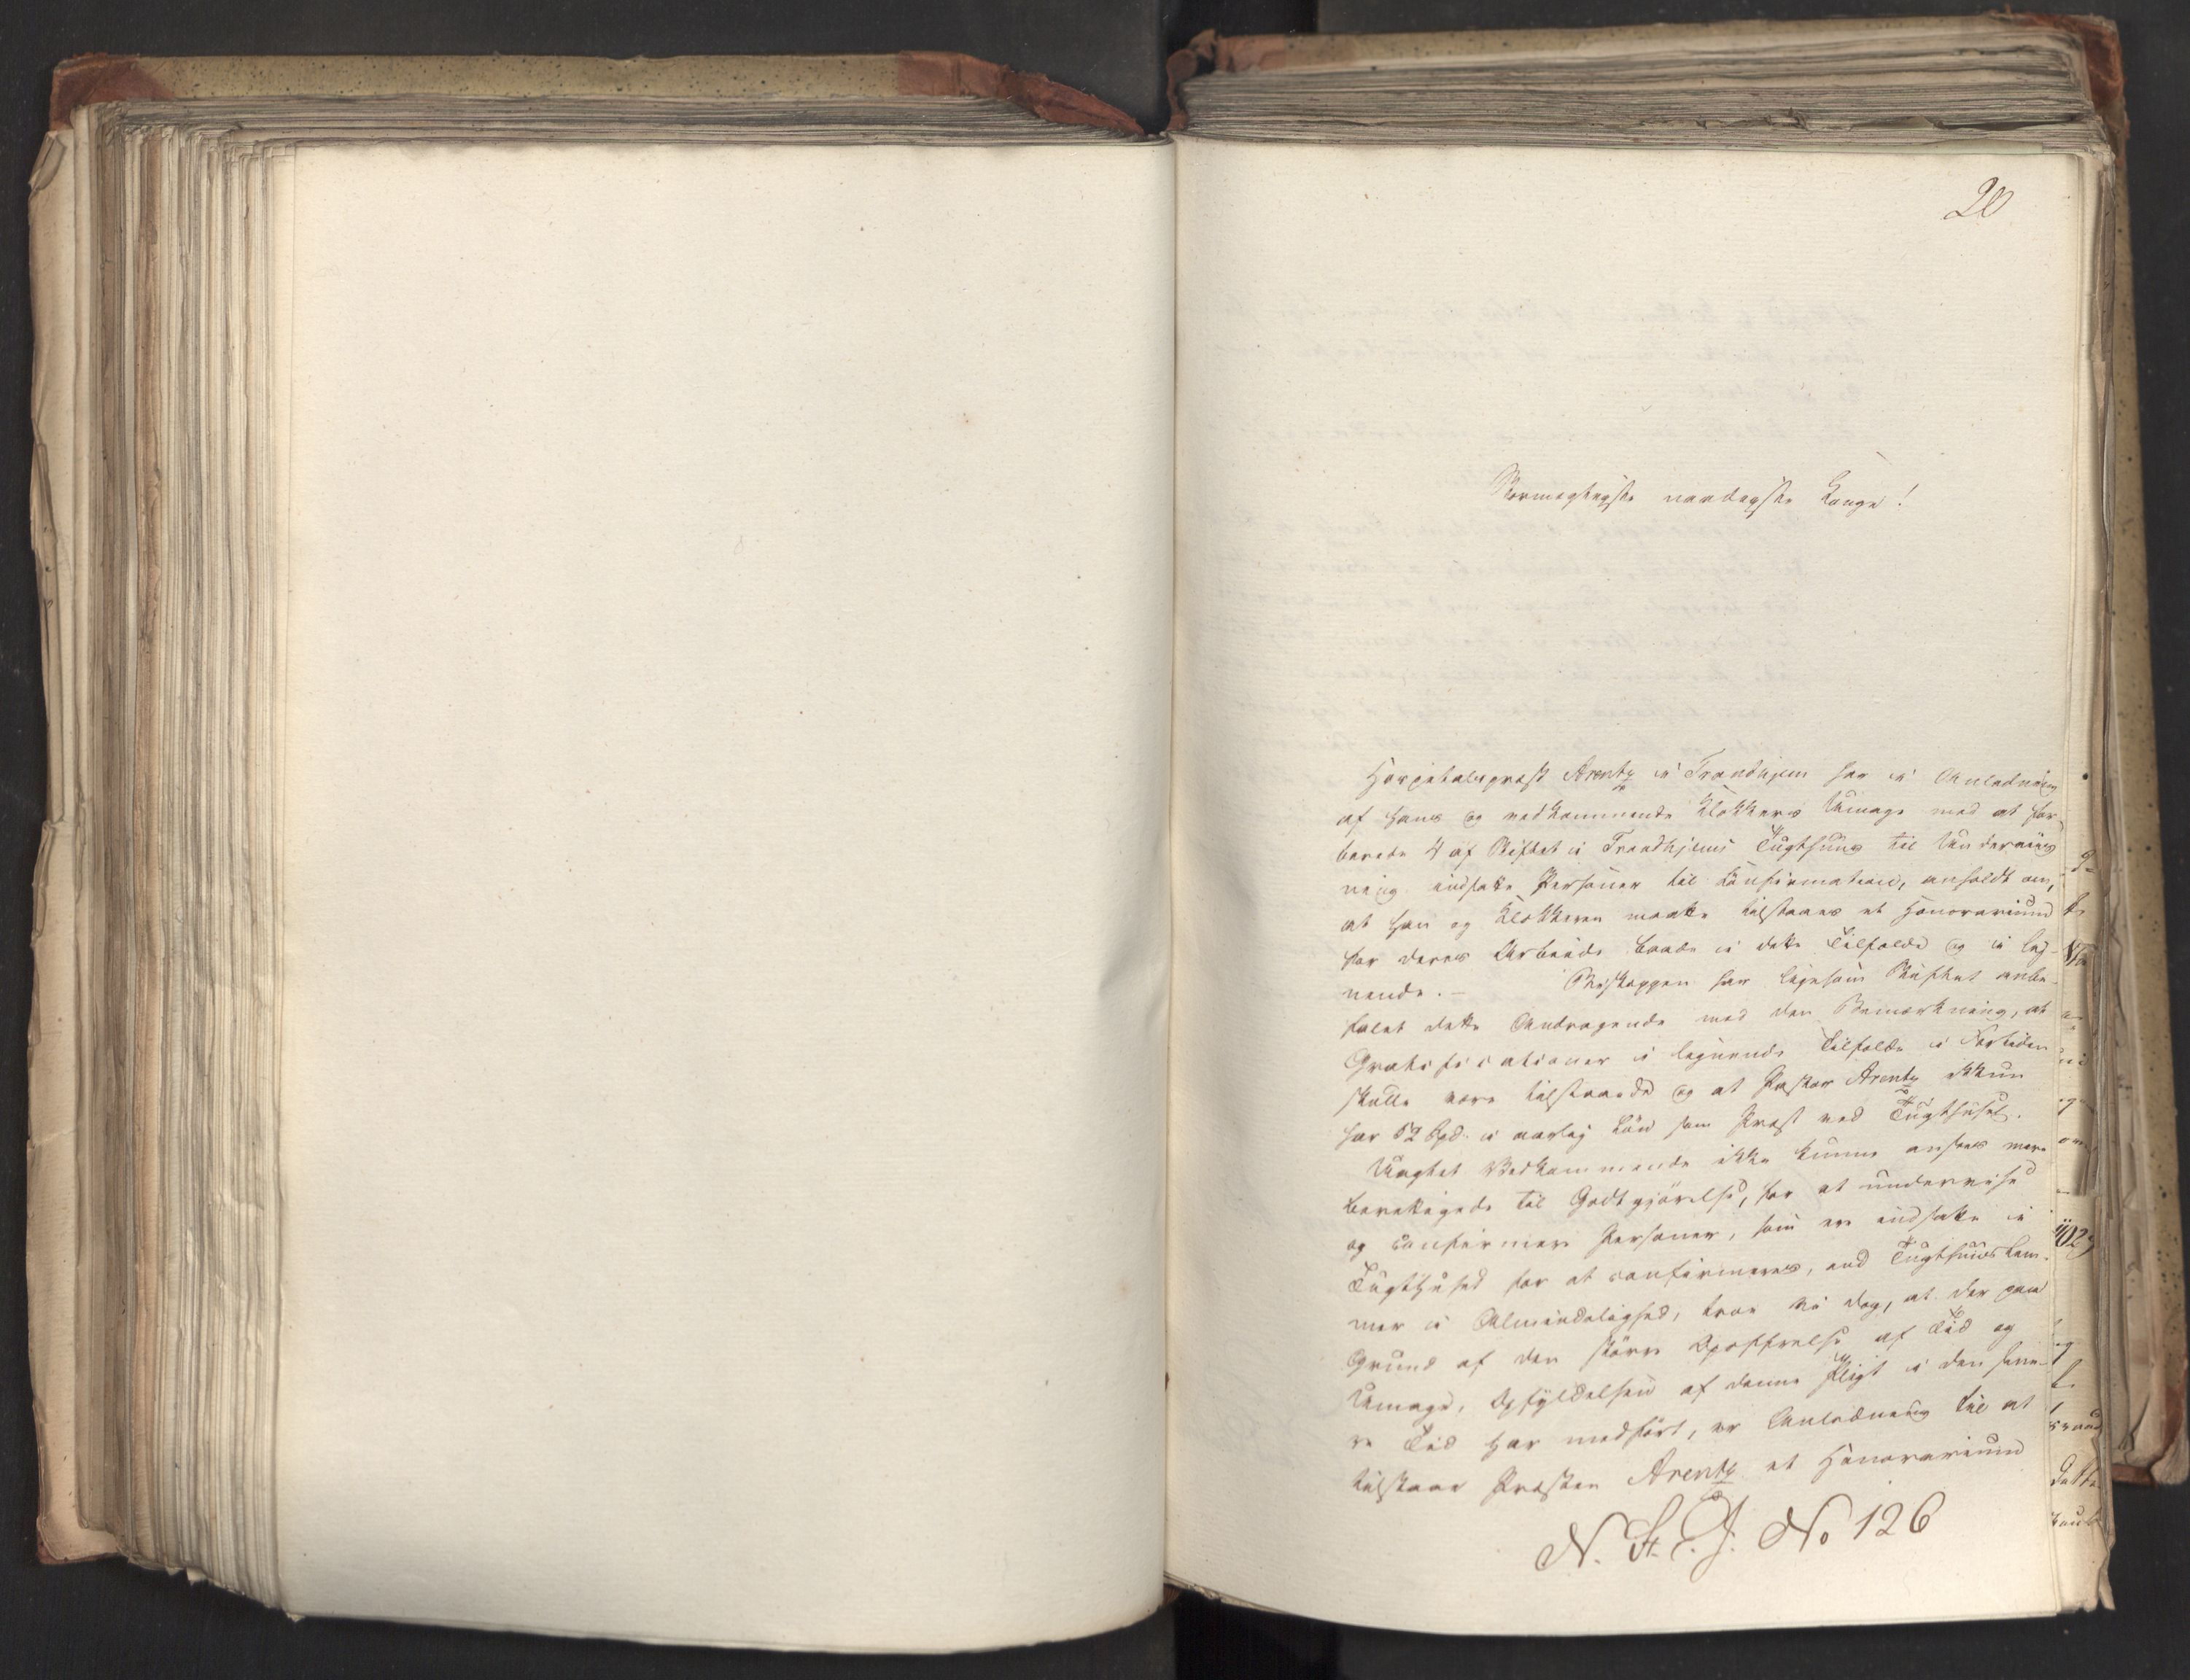 20
Stormægtigste naadigste Konge!
Hospitalspræst Arentz i Trondhjem har i Anledning
af hans og vedkommende Klokkers Umage med at for-
berede 4 af Stiftet i Trondhjems Tugthuus til Underviis
ning indsatte Personer til Confirmation, anholdt om,
at han og Klokkeren maatte tilstaaes et Honorarium
for deres Arbeide baade i dette Tilfælde og i lig-
nende. — Biskoppen har ligesom Stiftet anbe-
falet dette Andragende med den Bemærkning, at
Gratificationer i lignende Tilfælde i Fortiden
skulle være tilstaaede og at Pastor Arentz ikkun
har 52 Spd. i aarlig Løn som Præst ved Tugthuset.
Uagtet Vedkommende ikke kunne ansees mere
berettigede til Godtgjørelse, for at undervise
og confirmere Personer, som ere indsatte i
Tugthuset for at confirmeres, end Tugthuuslem-
mer i Almindelighed, troe vi dog, at der paa
Grund af den større Opoffrelse af Tid og
Umage, Opfyldelsen af denne Pligt i den sene-
re Tid har medført, er Anledning til at
tilstaae Præsten Arentz et Honorarium
N. St. J. No 126